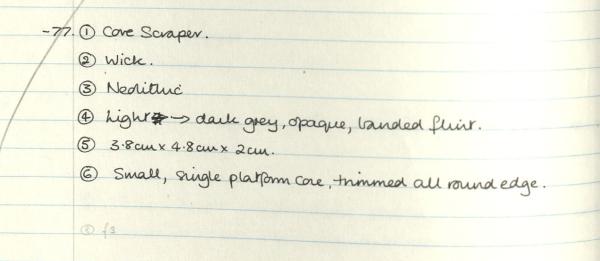 -77. ① Core Scraper.
② Wick.
③ Neolithic
④ Light → dark grey, opaque, banded flint.
⑤ 3.8cm x 4.8cm x 2cm.
⑥ Small, single platform core, trimmed all round edge.